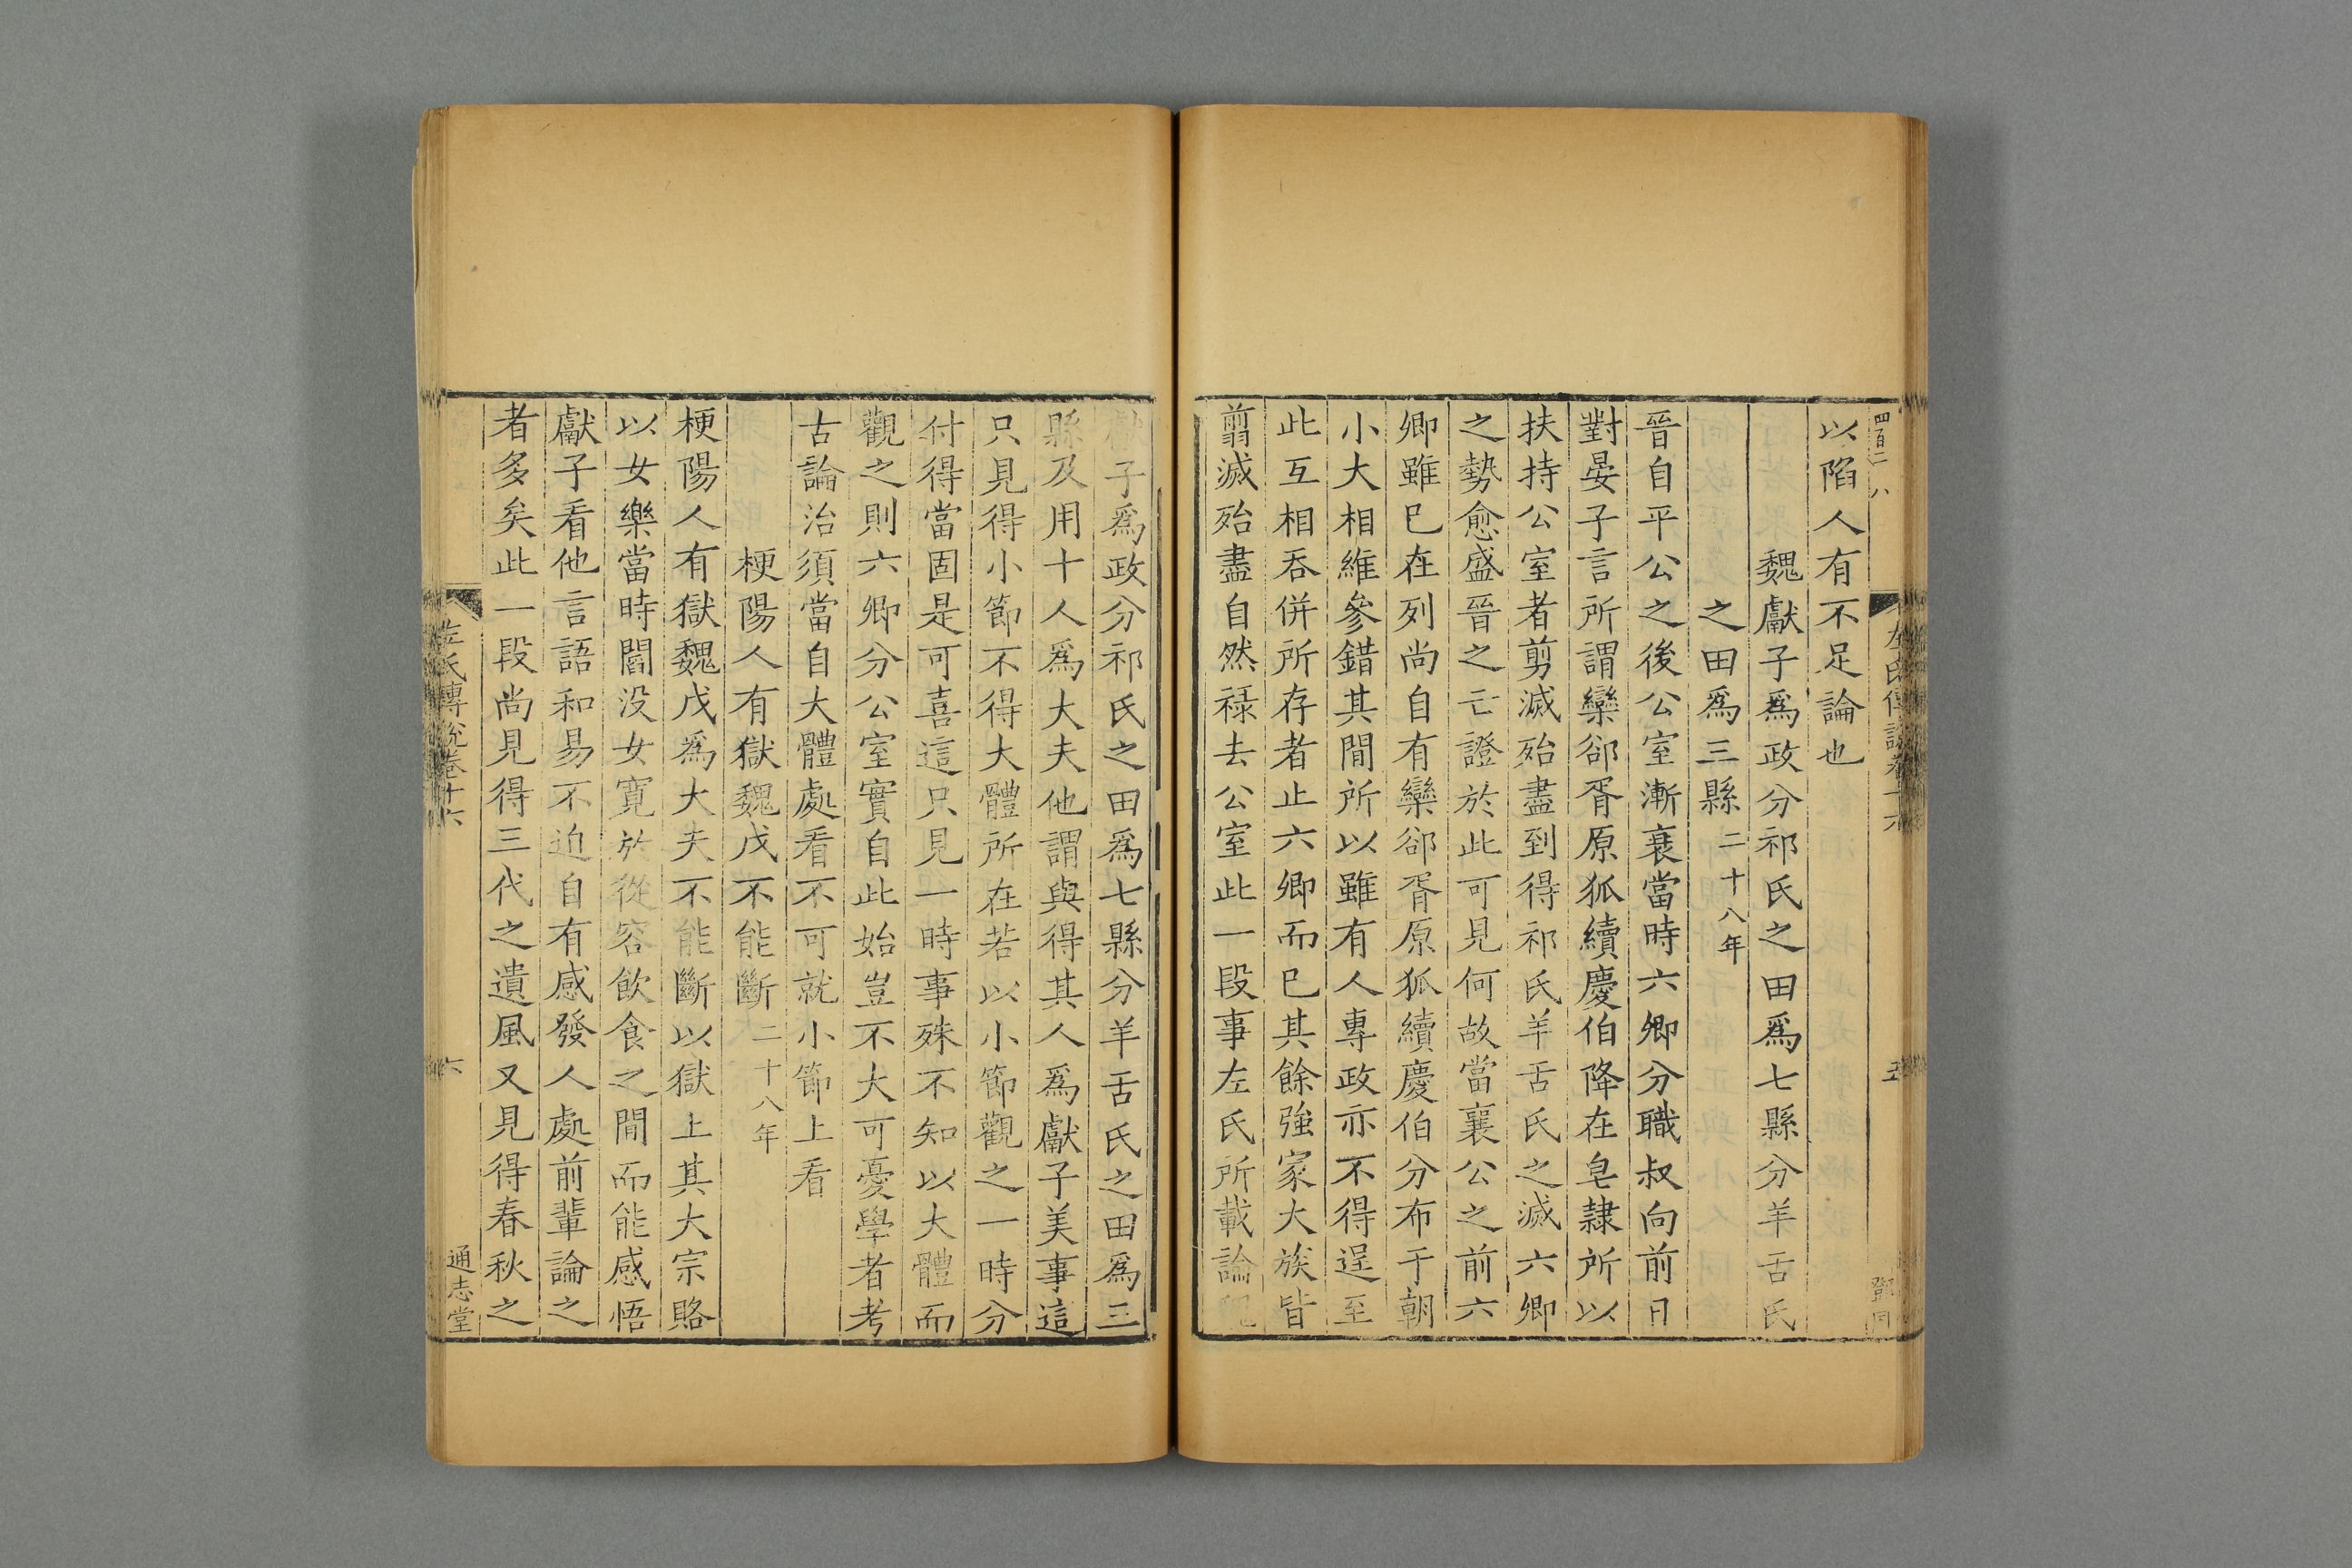 四百二八
左氏傳說卷十六
五
鄧同
以陷人有不足論也
魏獻子爲政分祁氏之田爲七縣分羊舌氏
之田爲三縣二十八年
晉自平公之後公室漸衰當時六卿分職叔向前日
對晏子言所謂欒郤胥原狐續慶伯降在皂隷所以
扶持公室者剪滅殆盡到得祁氏羊舌氏之滅六卿
之勢愈盛晉之亡證於此可見何故當襄公之前六
卿雖巳在列尚自有欒郤胥原狐續慶伯分布于朝
小大相維參錯其間所以雖有人專政亦不得逞至
此互相吞併所存者止六卿而巳其餘強家大族皆
翦滅殆盡自然祿去公室此一段事左氏所載論
子爲政分祁氏之田爲七縣分羊舌氏之田爲三
縣及用十人爲大夫他謂與得其人爲獻子美事這
只見得小節不得大體所在若以小節觀之一時分
付得當固是可喜這只見一時事殊不知以大體而
觀之則六卿分公室實自此始豈不大可憂學者考
古論治須當自大體處看不可就小節上看
梗陽人有獄魏戊不能斷二十八年
梗陽人有獄魏戊爲大夫不能斷以獄上其大宗賂
以女樂當時閻没女寛於從容飲食之間而能感悟
獻子看他言語和易不迫自有感發人處前輩論之
者多矣此一段尚見得三代之遺風又見得春秋之
左氏傳說卷十六
六
通志堂